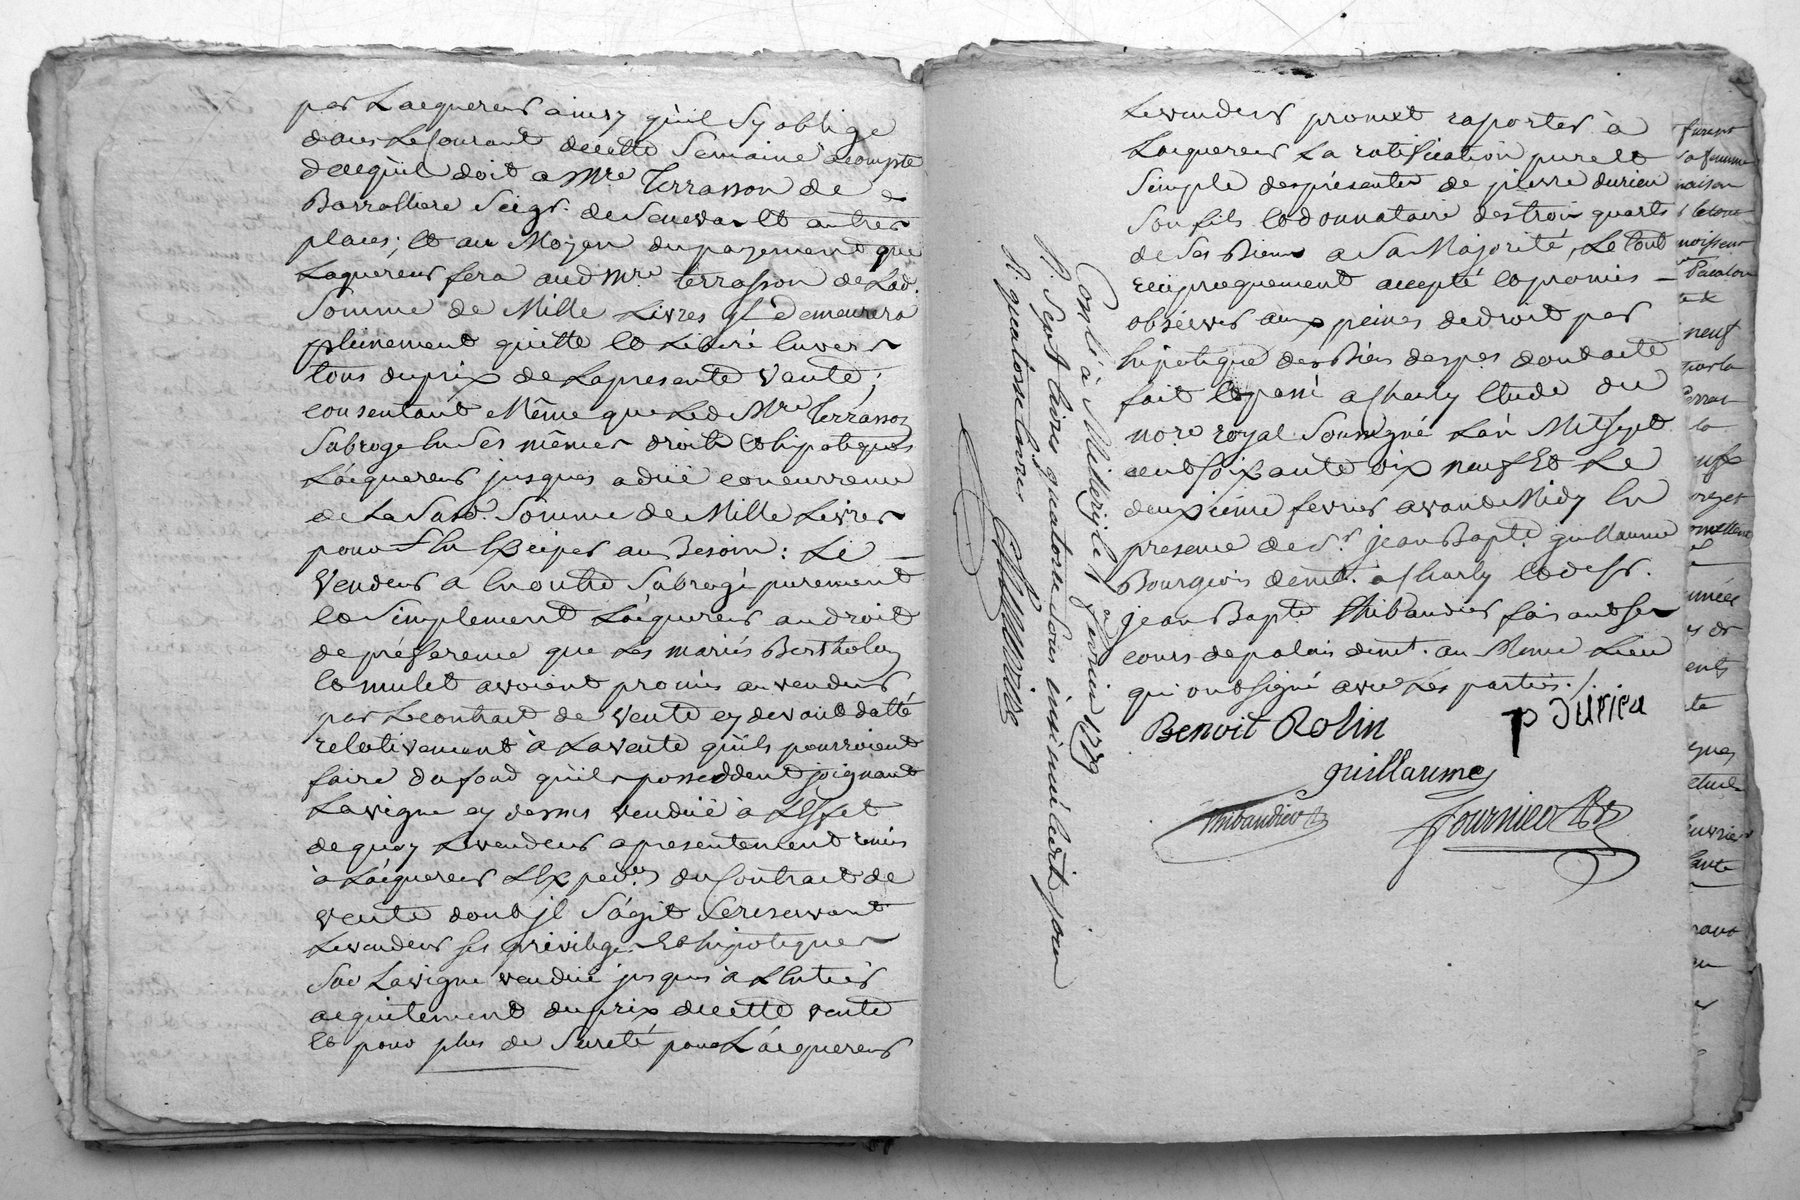 par Lacquereur ainsy qu'il Sy oblige
dans Le Courant de cette Semaine acompte
de ce qu'il doit a Mre Terrasson de
Barolliere Seigr. de Senevas et autres
places; et au Moyen du payement que
Laquereur fera aud Mre terrasson de Lad.
Somme de Mille Livres jl demeurera
pleinement quitte et Libéré Envers
tous du prix de La presente Vente;
consentant Même que Led Mre Terrasson
Subroge En Ses mêmes droits et hipoteques
L'acquereur jusques a düe concurrence
de La Sud. Somme de Mille Livres
pour S'En Exciper au Besoin: Le
Vendeur a En outre Subrogé purement
et Simplement L'acquereur au droit
de préference que Les mariés Bertholon
et mulet avoient promis au vendeur
par Le contrat de Vente cy devant datté
relativement à La vente qu'ils pourroient
faire du fond qu'ils posseddent joignant
La vigne cy dessus vendüe à L'Effet
de quoy Le vendeur a presentement remis
à L'acquereur L'Expeðon du Contract de
Vente dont jl S'agit Se reservant
Le vendeur Ses privilege Et hipoteques
Sur La vigne vendüe jusques à L'Entier
acquitement du prix de cette vente
Et pour plus de Sureté pour L'acquereur
Le vendeur promet raporter à
L'acquereur La ratification pure et
Simple des présentes de pierre durieu
Son fils et donnataire des trois quarts
de Ses Biens a Sa Majorité, Le tout
reciproquement accepté et promis
observer aux peines de droit par
hipoteque des Biens des pes dont acte
fait et passé a Charly Etude du
nore royal Soussigné L'an Mil Sept
cent Soixante dix neuf Et Le
deuxieme fevrier avant Midy En
presence de Sr. jean Bapte guillaume
Bourgeois demt. à Charly et de Sr.
jean Bapte Thibaudier faisant Ses
cours de palais demt. au Meme Lieu
qui ont Signé avec Les parties./.
Benoit Rolin
p Durieu
guillaume
Thibaudier
fournier
Conlé à Millery le 9 fevrier 1779
R. Sept livres quatorze Sous insinué ledit jour
R. quatorze livres